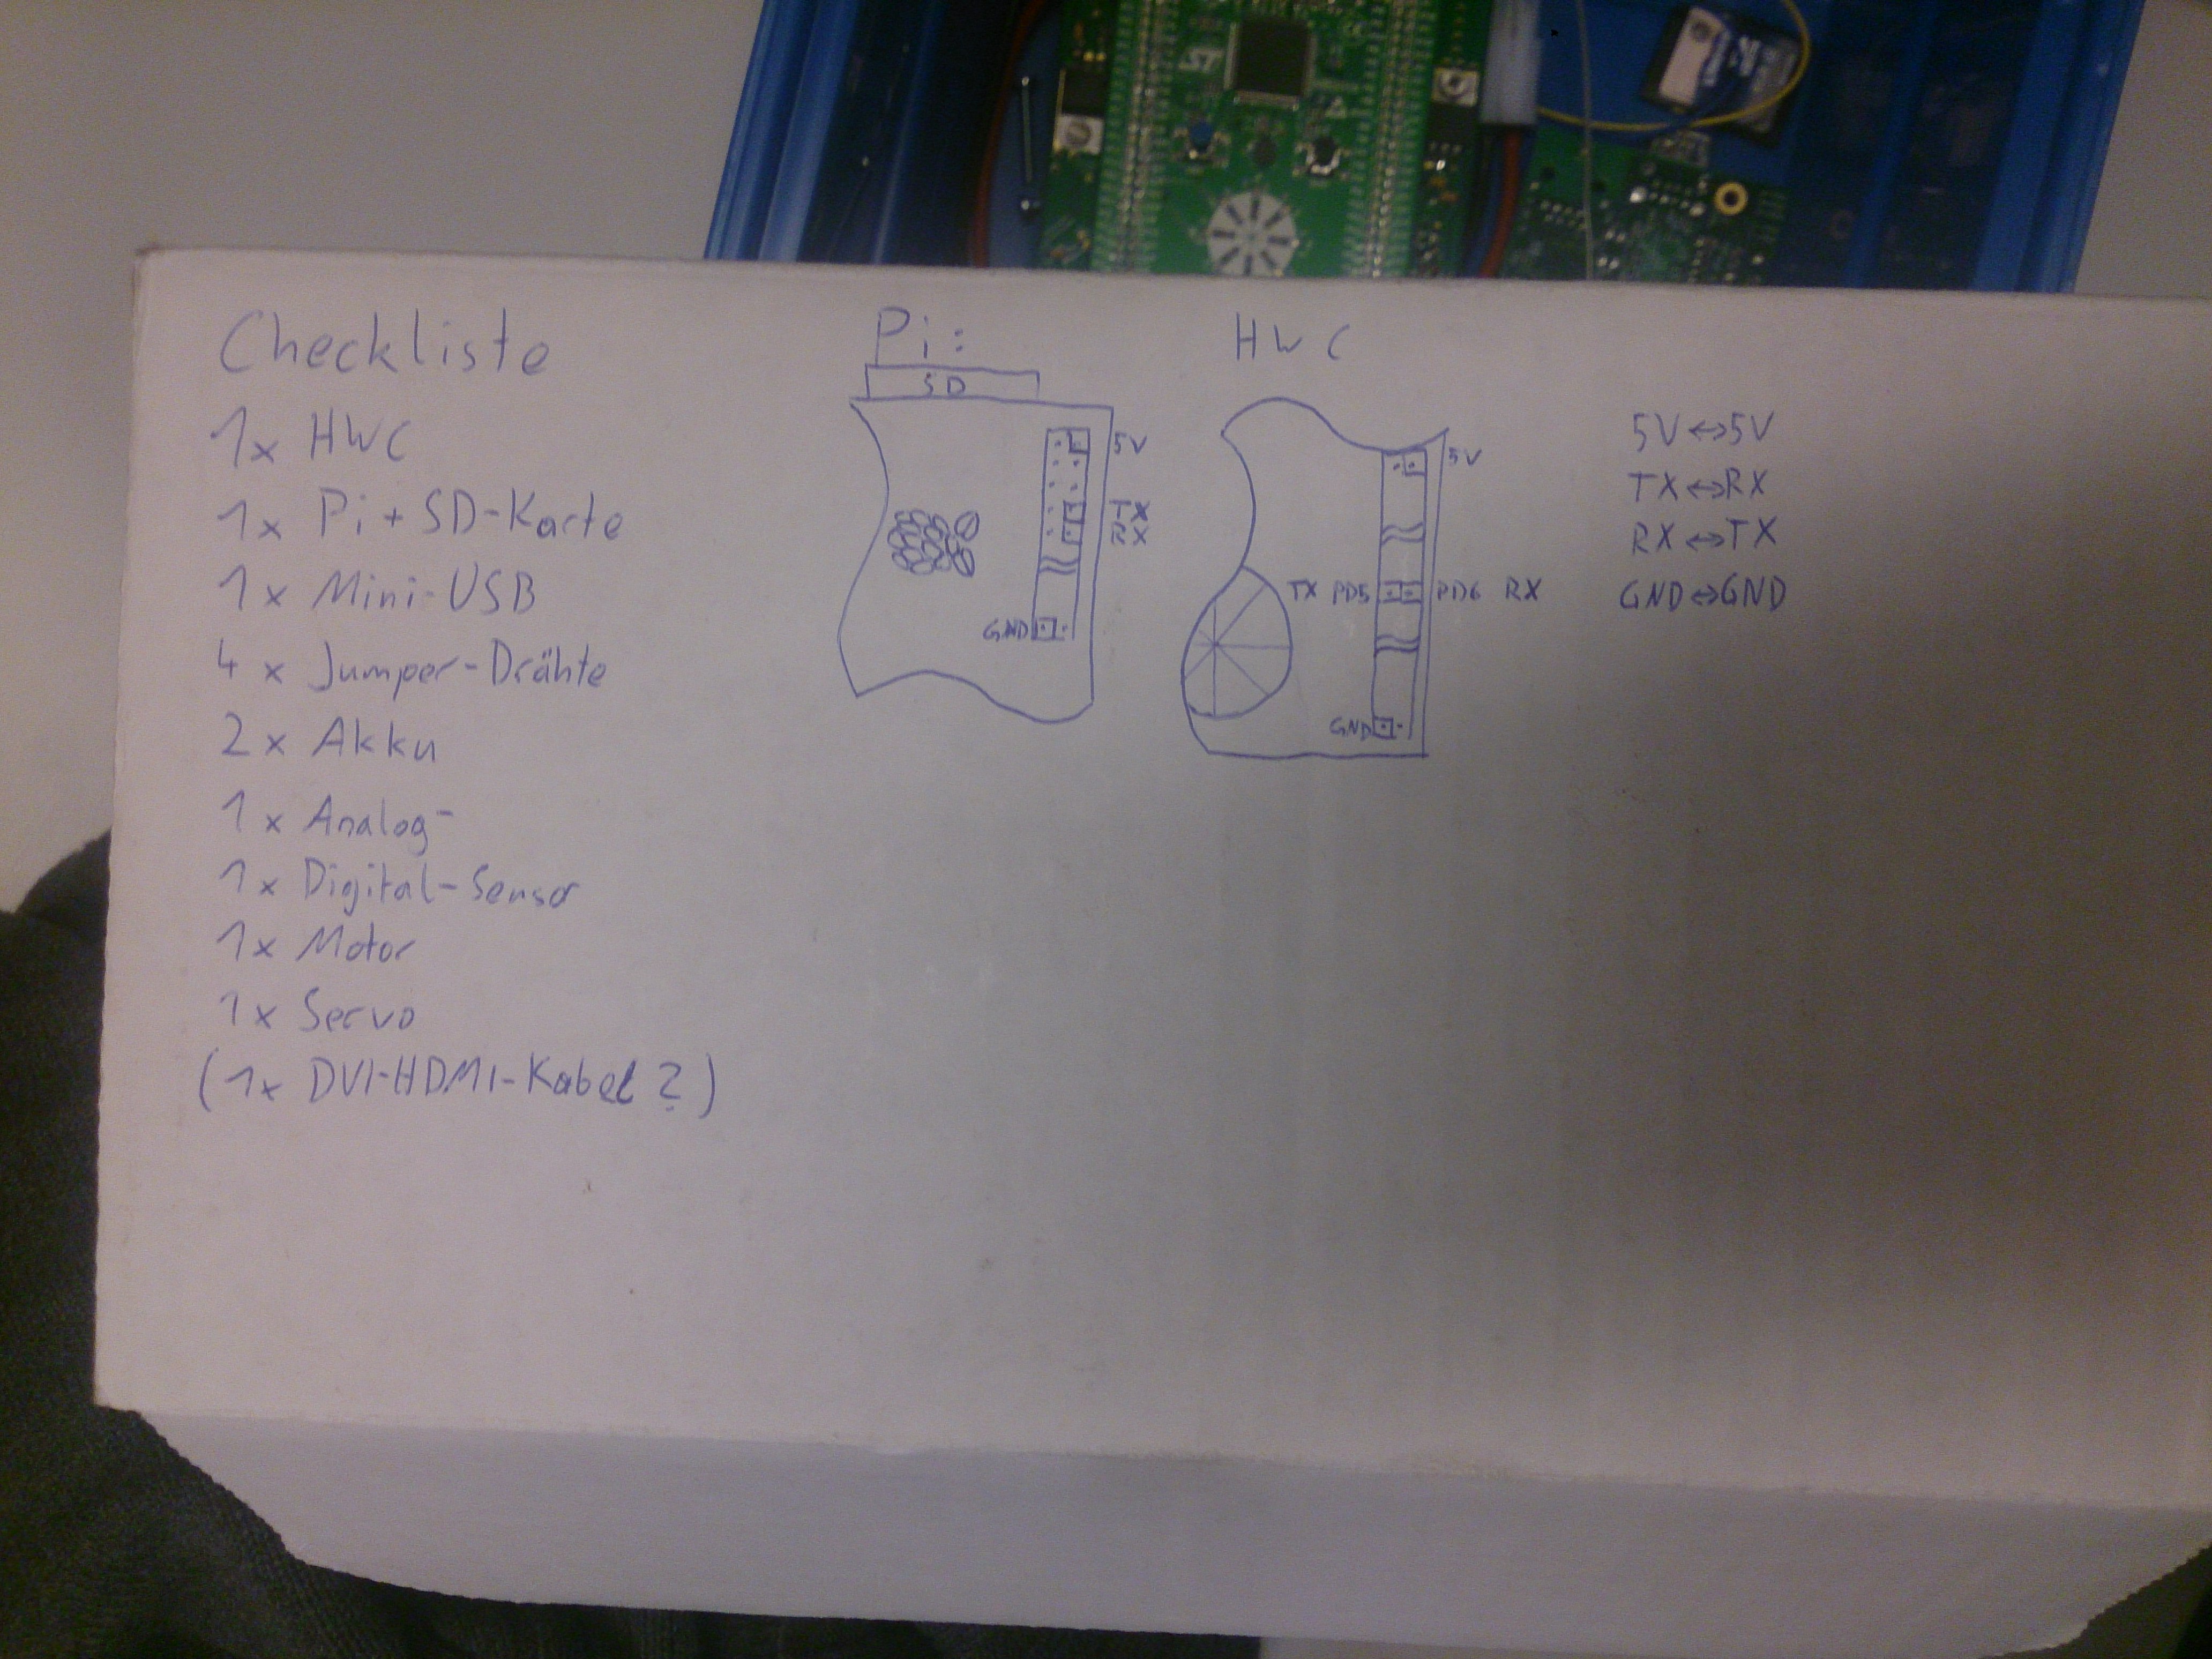 Checkliste
1x HWC
1x Pi + SD-Karte
1x Mini-USB
4x Jumper-Drähte
2x Akku
1x Analog-
1x Digital-Sensor
1x Motor
1x Servo
(1x DVI-HDMI-Kabel?)
Pi:
SD
5V
TX
RX
GND
HWC
5V
TX PD5 PD6 RX
GND
5V↔5V
TX↔RX
RX↔TX
GND↔GND
ST